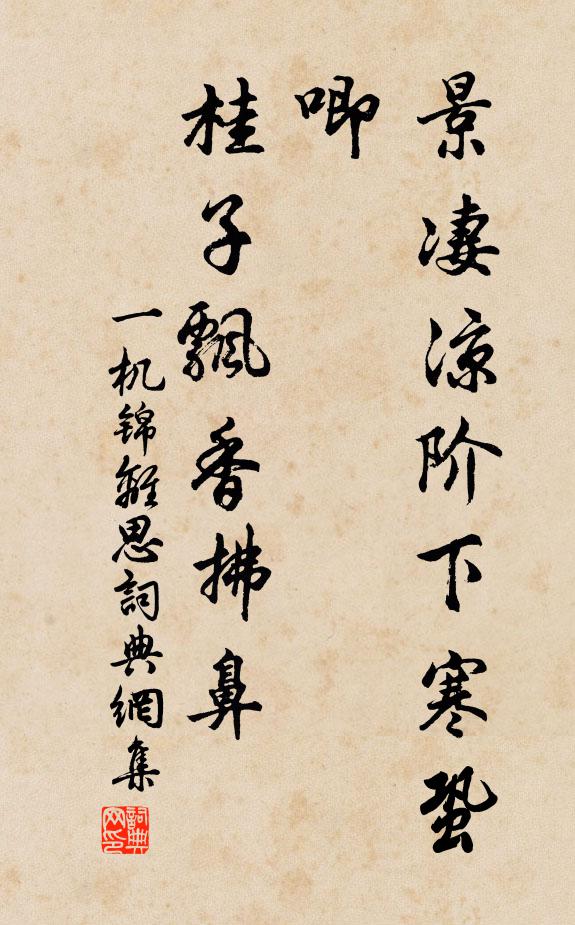 景凄凉阶下寒蛩
唧
桂子飘香拂鼻
一机锦離思詞典網集
詞典
网印